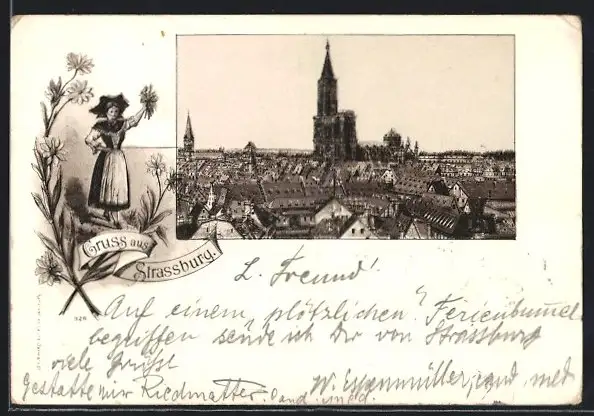 Gruss aus
Strassburg.
L. Freund!
Auf einem "plötzlichen" Ferienbummel
begriffen sende ich Dir von Strassburg
viele Grüße
W. Essenmüller, cand. med
Gestatte mir Riedmatter. cand. med.
926